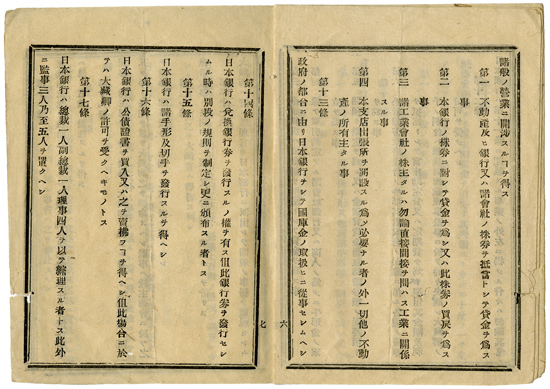 諸般ノ營業ニ關渉スルヿヲ得ス
第一 不動產及ヒ銀行又ハ諸會社ノ株券ヲ抵當トシテ貸金ヲ爲ス
事
第二 本銀行ノ株券ニ對シテ貸金ヲ爲シ又ハ此株券ノ買戻ヲ爲ス
事
第三 諸工業會社ノ株主タルハ勿論直接間接ヲ問ハス工業ニ關係
スル事
第四 本支店出張所ヲ開設スル爲メ必要ナル者ノ外一切他ノ不動
產ノ所有主タル事
第十三條
政府ノ都合ニ由リ日本銀行ヲシテ國庫金ノ取扱ヒニ從事セシムヘシ
六
第十四條
日本銀行ハ兌換銀行券ヲ發行スルノ權ヲ有ス但此銀行券ヲ發行セシ
ムル時ハ別段ノ規則ヲ制定シ更ニ頒布スル者トス
第十五條
日本銀行ハ諸手形及切手ヲ發行スルヲ得ヘシ
第十六條
日本銀行ハ公債證書ヲ買入又ハ之ヲ賣拂フヿヲ得ヘシ但此場合ニ於
テハ大藏卿ノ許可ヲ受クヘキモノトス
第十七條
日本銀行ハ總裁一人副總裁一人理事四人ヲ以テ綜理スル者トス此外
ニ監事三人乃至五人ヲ置クヘシ
七